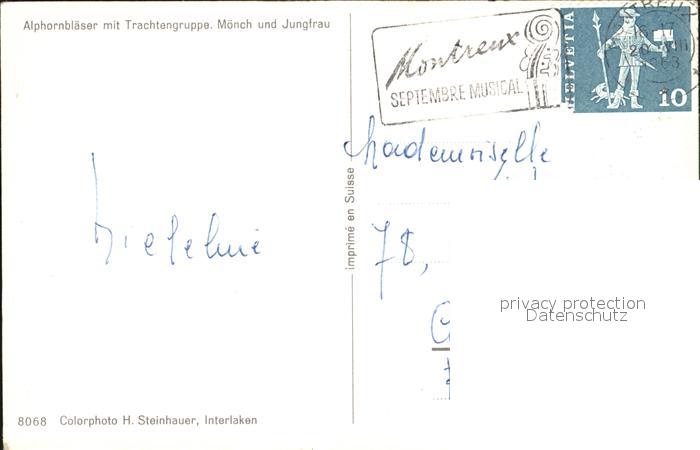 Alphornbläser mit Trachtengruppe. Mönch und Jungfrau
Montreux
SEPTEMBRE MUSICAL
HELVETIA
10
Mademoiselle
imprimé en Suisse
78,
privacy protection
Datenschutz
8068 Colorphoto H. Steinhauer, Interlaken